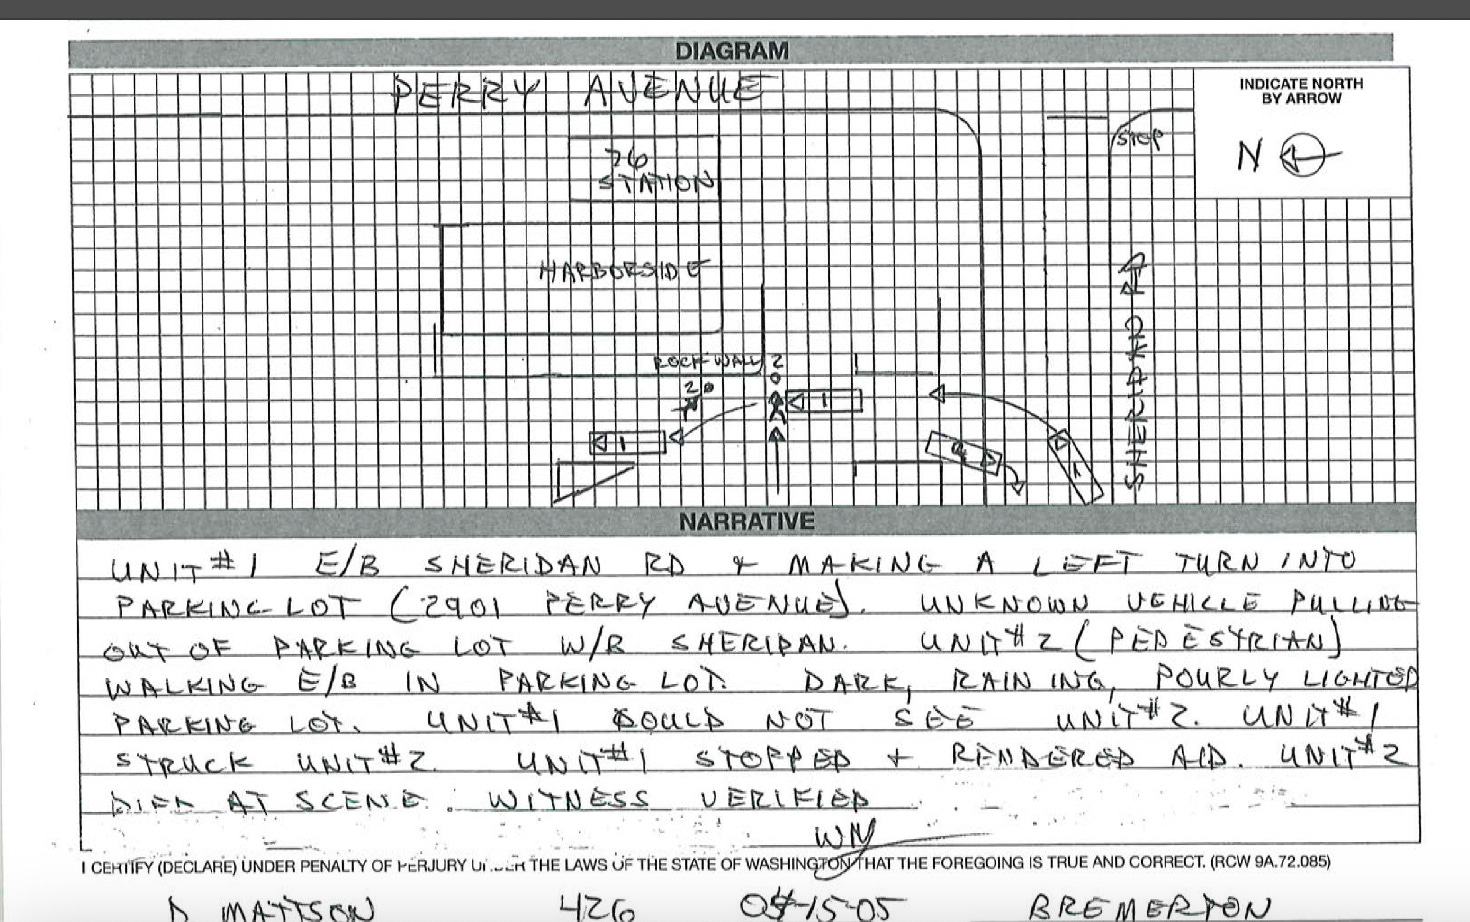 DIAGRAM
PERRY AVENUE
INDICATE NORTH
BY ARROW
N
STOP
76
STATION
HARBORSIDE
SHERIDAN RD
ROCK WALL
2
2
1
1
1
NARRATIVE
UNIT #1 E/B SHERIDAN RD & MAKING A LEFT TURN INTO
PARKING LOT (2901 PERRY AVENUE). UNKNOWN VEHICLE PULLING
OUT OF PARKING LOT W/B SHERIDAN. UNIT #2 (PEDESTRIAN)
WALKING E/B IN PARKING LOT. DARK, RAINING, POURLY LIGHTED
PARKING LOT. UNIT #1 COULD NOT SEE UNIT #2. UNIT #1
STRUCK UNIT #2. UNIT #1 STOPPED + RENDERED AID. UNIT #2
DIED AT SCENE. WITNESS VERIFIED
WM
I CERTIFY (DECLARE) UNDER PENALTY OF PERJURY UNDER THE LAWS OF THE STATE OF WASHINGTON THAT THE FOREGOING IS TRUE AND CORRECT. (RCW 9A.72.085)
D MATTSON 426 BREMERTON